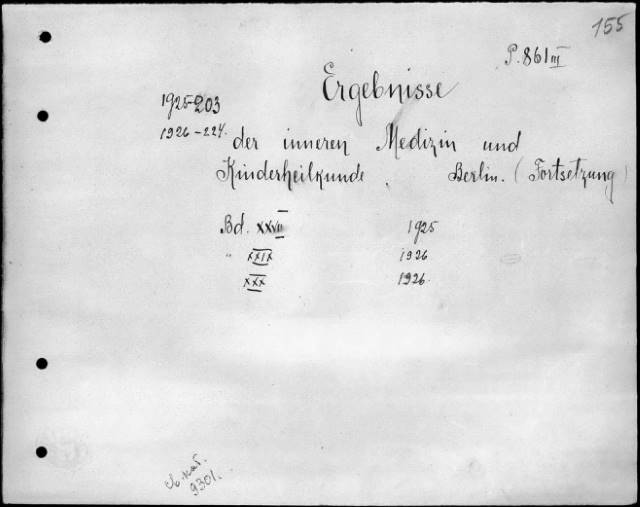 155
P. 861 III
Ergebnisse
1925-203
1926-224.
der inneren Medizin und
Kinderheilkunde, Berlin. (Fortsetzung)
Bd. XXVII 1925
" XXIX 1926
XXX 1926.
св. кат.
9301.